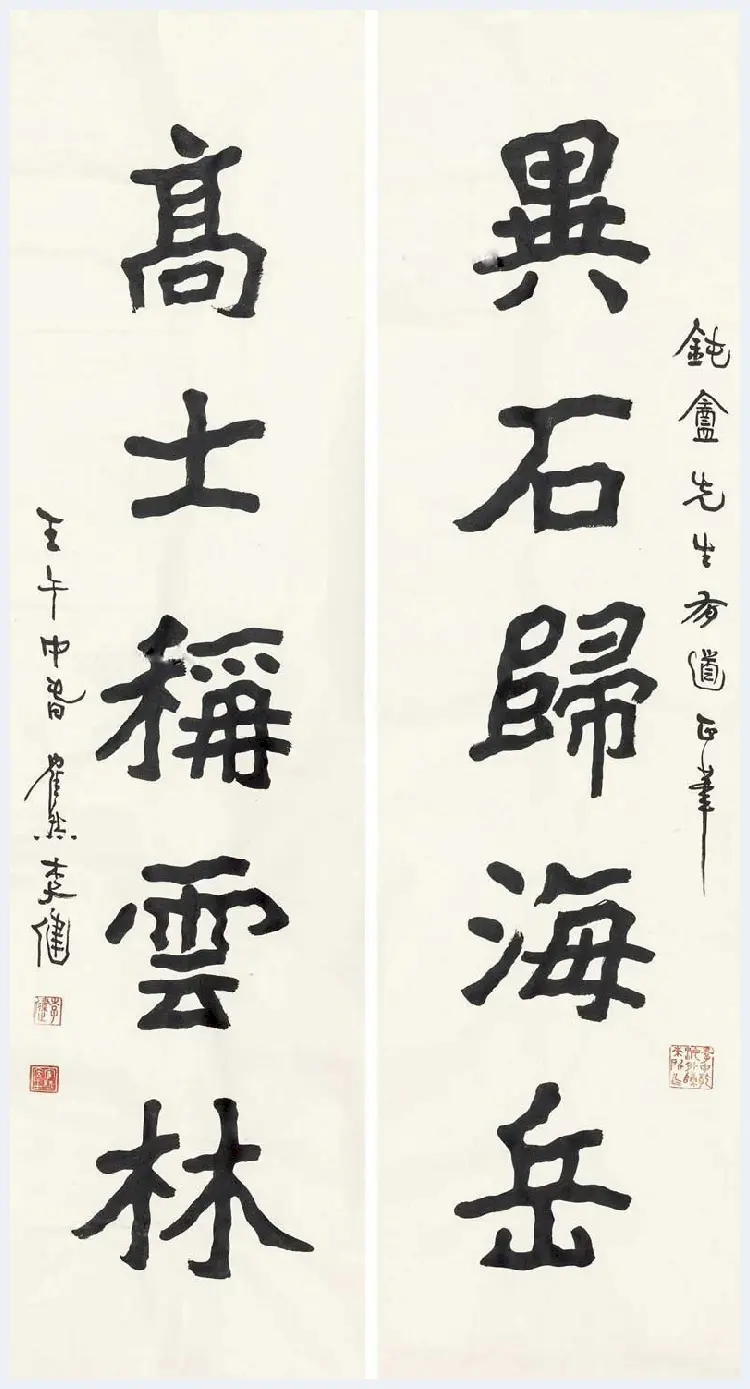 鈍盦先生有道正筆
異石歸海岳
高士稱雲林
壬午中春崔然李健